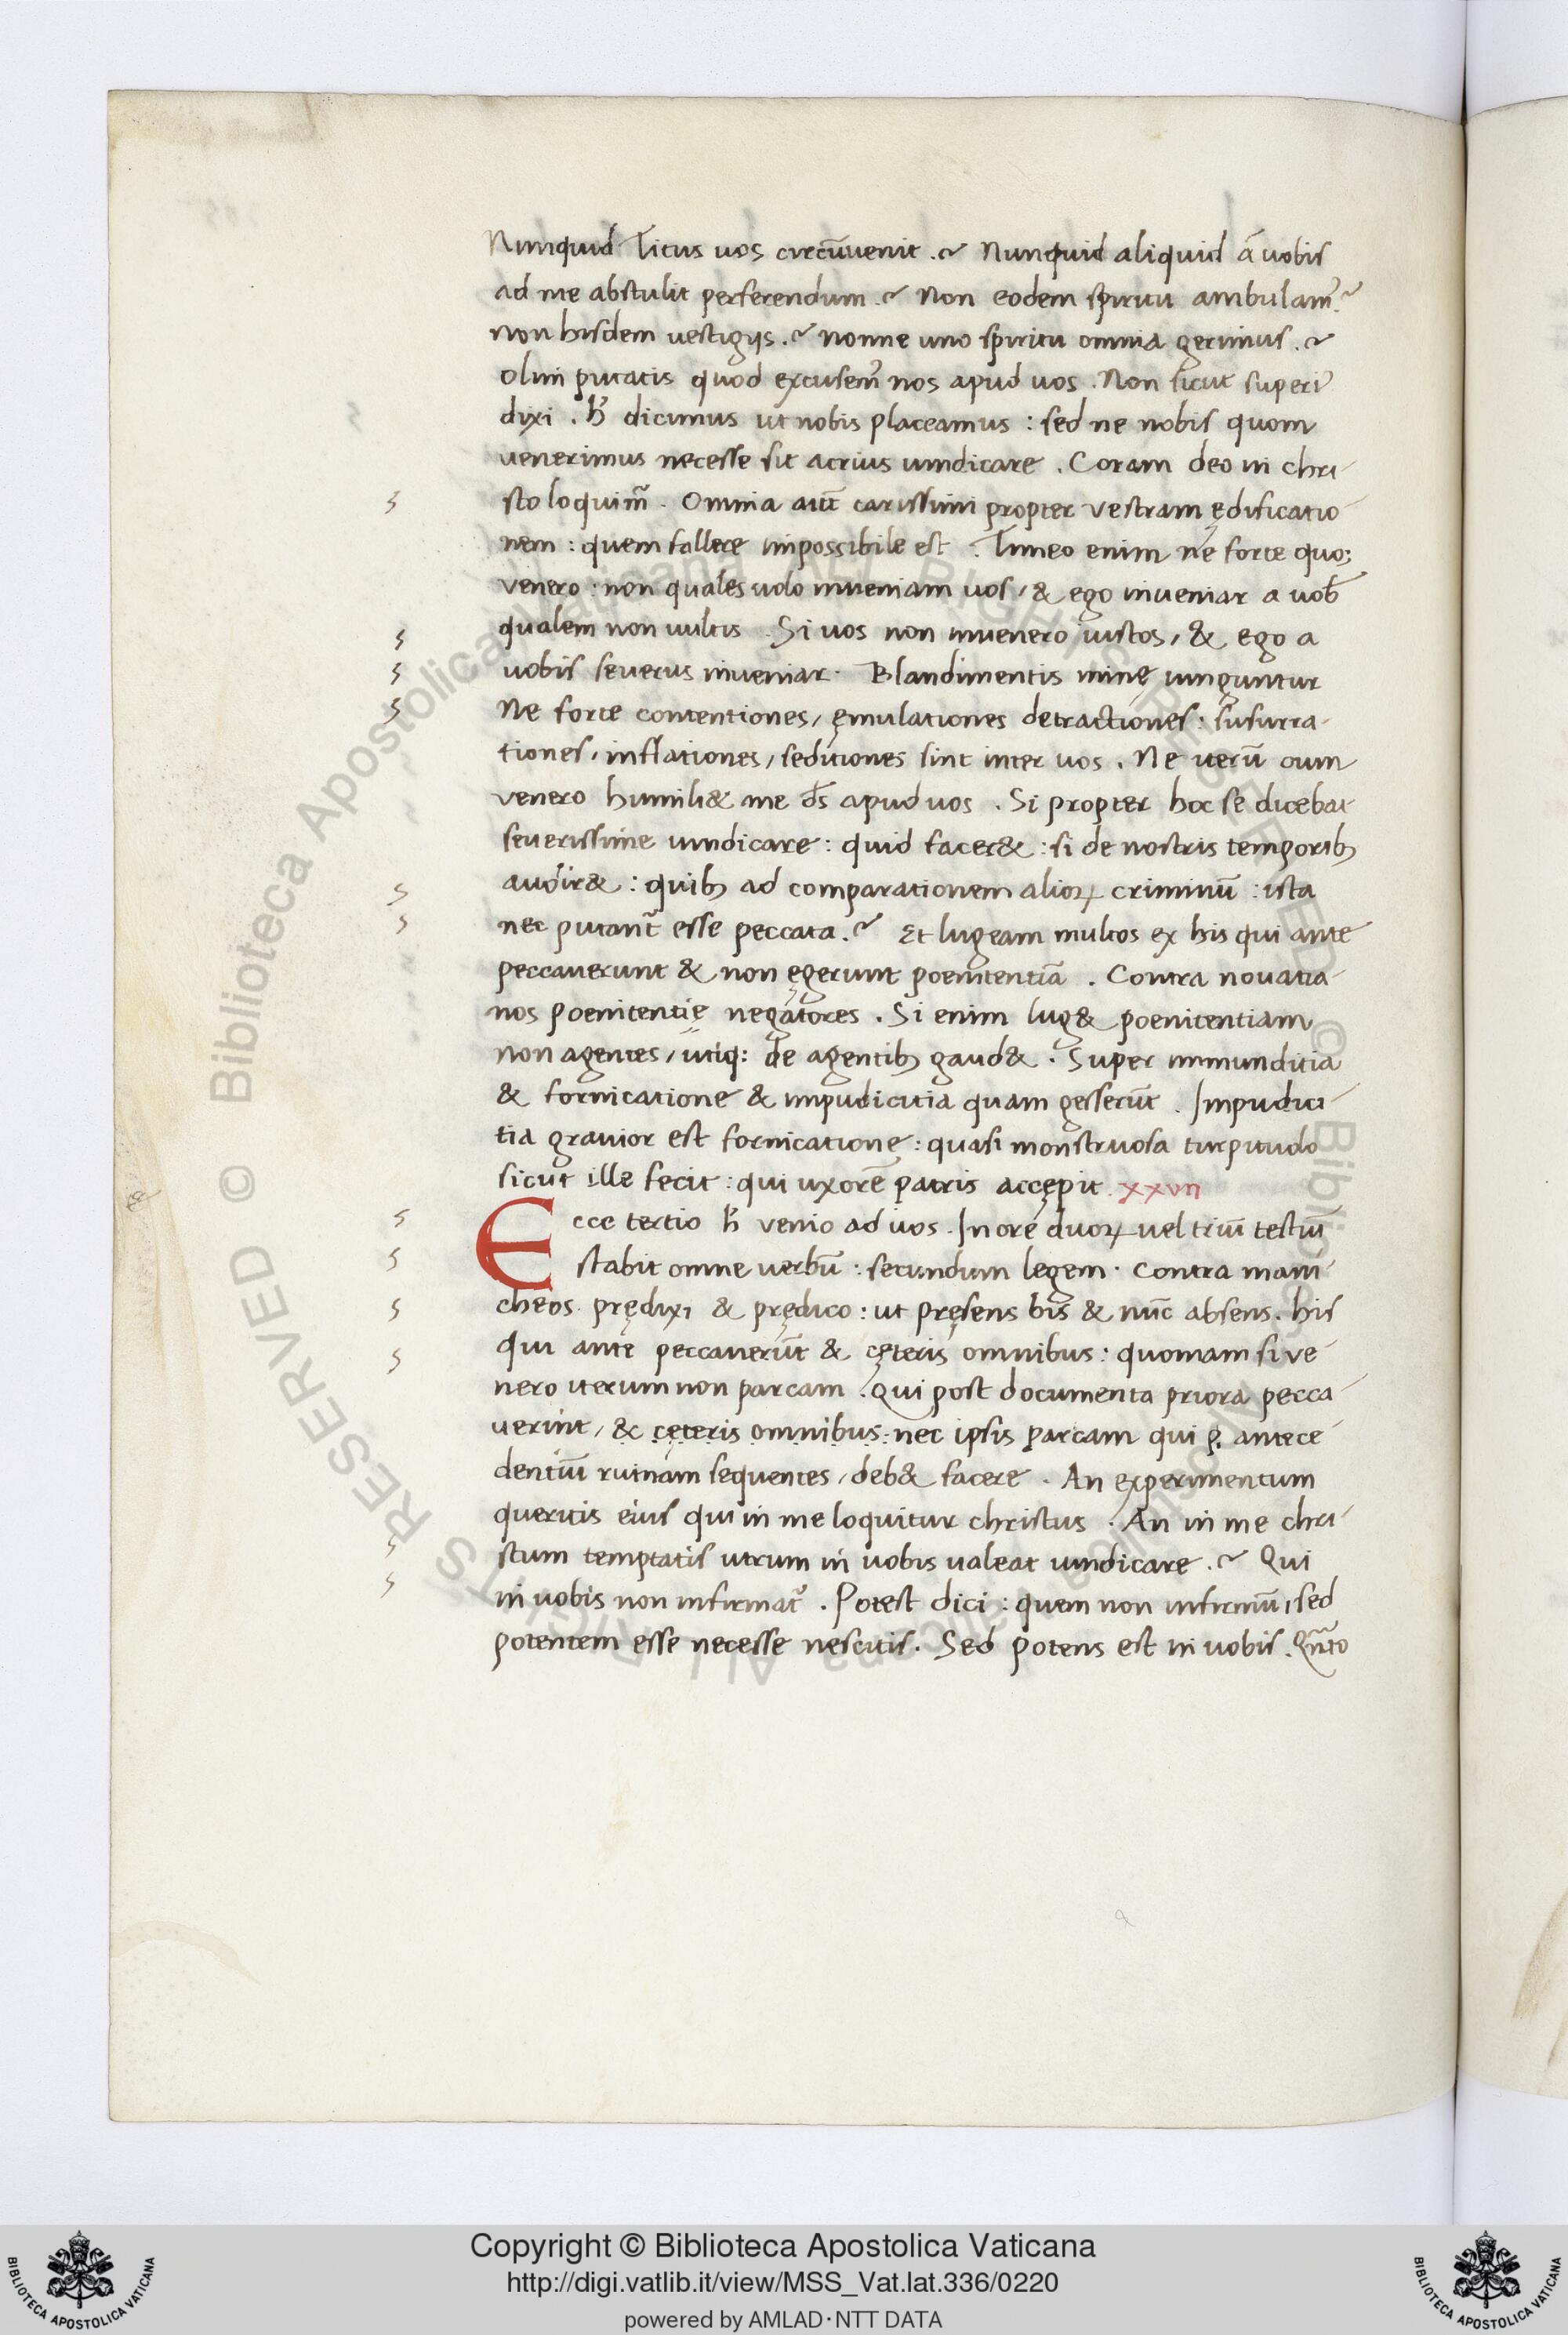 Nunquid Titus uos circūuenit .? Nunquid aliquid a uobis
ad me abstulit perferendum .? Non eodem spiritu ambulam᷒ .?
non hisdem uestigijs .? nonne uno spiritu omnia gerimus .?
olim putatis quod excusem᷒ nos apud uos . Non sicut superi᷒
dixi . h̄ dicimus ut nobis placeamus : sed ne nobis quom
uenerimus necesse sit acrius uindicare . Coram deo in chri-
sto loquim᷒ . Omnia aūt carissimi propter vestram ędificatio-
nem : quem fallere impossibile est . Timeo enim ne forte quo;
venero : non quales uolo inueniam uos / & ego inueniar a uob̄
qualem non uultis . Si uos non inuenero iustos / & ego a
uobis seuerus inueniar . Blandimentis minę iunguntur
Ne forte contentiones / ęmulationes detractiones : susurra-
tiones / inflationes / seditiones sint inter uos . Ne iterū cum
venero humili& me d̄s apud uos . Si propter hoc se dicebat
seuerissime uindicare : quid facer& : si de nostris temporib;
audir& : quib; ad comparationem alioꝝ criminū : ista
nec putant᷒ esse peccata .? Et lugeam multos ex his qui ante
peccauerunt & non ęgerunt poenitentiā . Contra nouatia-
nos poenitentię negatores . Si enim lug& poenitentiam
non agentes / utiq: de agentib; gaud& . Super immunditia
& fornicatione & impudicitia quam gesserūt . Impudici-
tia grauior est fornicatione : quasi monstruosa turpitudo
sicut ille fecit : qui uxorē patris accępit . xxvii
Ecce tertio h̄ venio ad uos . In ore duoꝝ uel triū testiū
stabit omne uerbū : secundum legem . Contra mani-
cheos . prędixi & prędico : ut pręsens bis & nūc absens . his
qui ante peccauerūt & cęteris omnibus : quoniam si ve-
nero iterum non parcam . Qui post documenta priora pecca-
uerint / & cęteris omnibus : nec ipsis parcam qui ꝑ antece-
dentiū ruinam sequentes / deb& facere . An experimentum
queritis eius qui in me loquitur christus . An in me chri-
stum temptatis utrum in uobis ualeat uindicare .? Qui
in uobis non infirmat᷒ . Potest dici : quem non infirmū / sed
potentem esse necesse nescitis . Sed potens est in uobis . Qn̄to
Copyright © Biblioteca Apostolica Vaticana
http://digi.vatlib.it/view/MSS_Vat.lat.336/0220
powered by AMLAD·NTT DATA
BIBLIOTECA APOSTOLICA VATICANA
BIBLIOTECA APOSTOLICA VATICANA